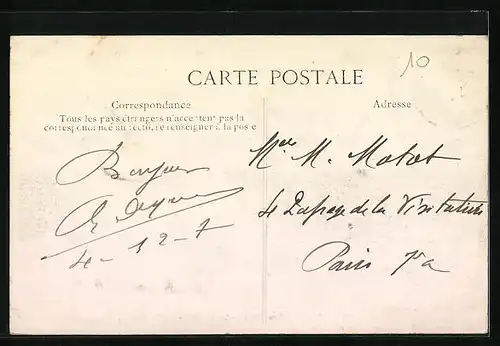 10
CARTE POSTALE
Correspondance
Tous les pays étrangers n'acceptent pas la
correspondance au recto, se renseigner à la poste
Adresse
Bonjour
4-12-7
Mlle M. Motot
4 Passage de la Visitation
Paris 7e